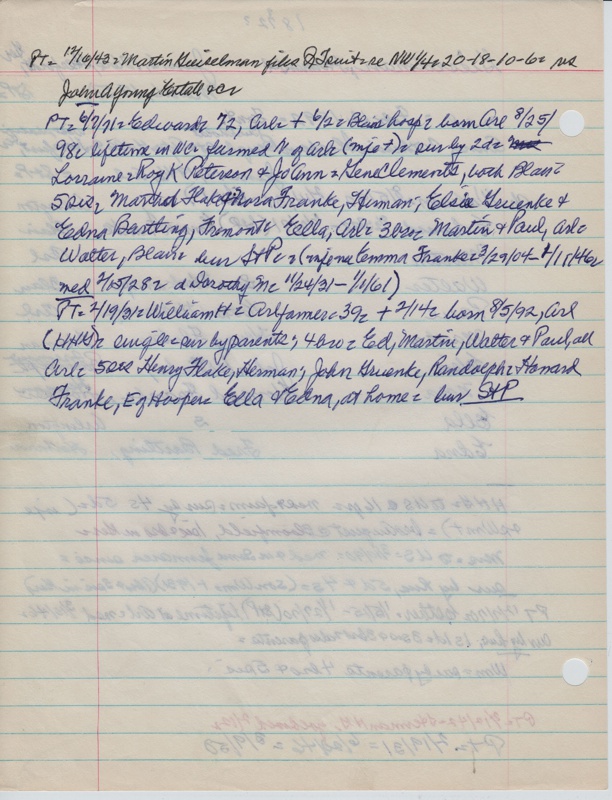 PT= 12/16/43= Martin Geiselman files Q T suit= re NW 1/4= 20-18-10-6= vs
John A Young Estate &c=
PT= 6/7/71= Edward= 72, Arl= + 6/2= Blair hosp= born Arl 8/25/
98= lifetime in WC= farmed N of Arl= (wife +)= sur by 2d=
Lorraine= Roy K Peterson & JoAnn= Gene Clements, both Blair=
5 sis= Martha Flake, Nora Franke, Herman; Elsie Gruenke &
Edna Bartling, Fremont= Ella, Arl= 3 bro= Martin & Paul, Arl=
Walter, Blair= bur StP= (wife= Emma Franke= 3/29/04-
med 2/15/28= d Dorothy M= 11/24/31- 1/1/61)
PT= 2/19/31= William H= Arl farmer= 39= + 2/14= born 8/5/92, Arl
(HHG)= single= sur by parents; 4 bro= Ed, Martin, Walter & Paul, all
Arl= 5 sis Henry Flake, Herman; John Gruenke, Randolph= Howard
Franke, E of Hooper= Ella & Edna, at home= bur StP